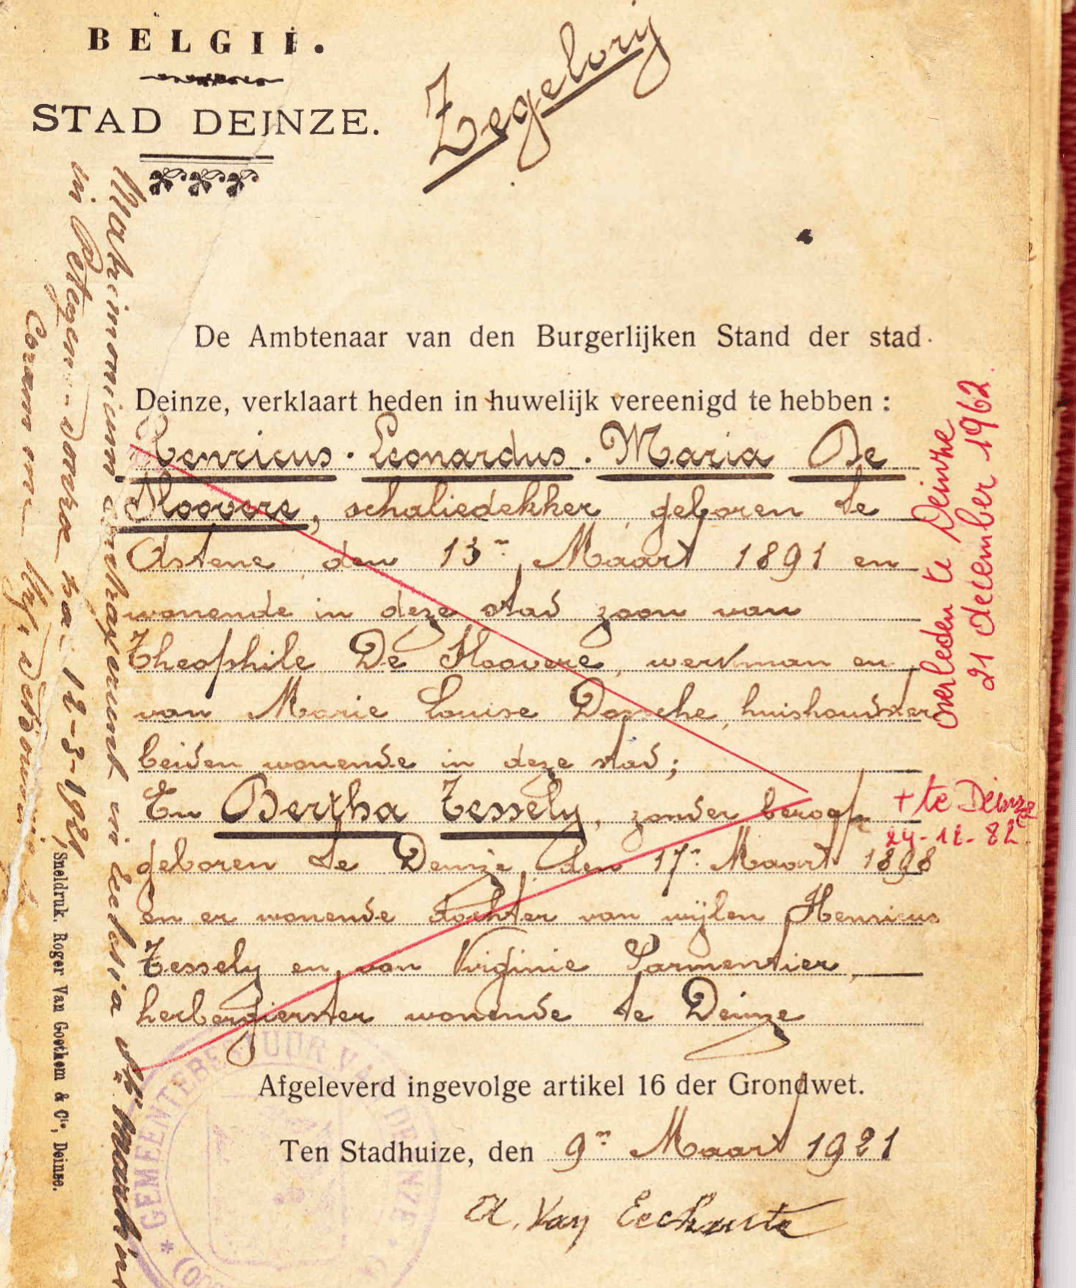 BELGIË.
STAD DEINZE.
Zegelvrij
De Ambtenaar van den Burgerlijken Stand der stad
Deinze, verklaart heden in huwelijk vereenigd te hebben :
Henricus. Leonardus. Maria De
Hoovere, schaliedekker, geboren te
Astene, den 13n Maart 1891 en
wonende in deze stad zoon van
Theophile De Hoovere, werkman en
van Marie Louise Dossche, huishoudster
beiden wonende in deze stad;
En Bertha Tessely, zonder beroep
geboren te Deinze, den 17n Maart 1898
en er wonende dochter van wijlen Henricus
Tessely en van Virginie Parmentier,
herbergierster wonende te Deinze
Afgeleverd ingevolge artikel 16 der Grondwet.
Ten Stadhuize, den 9n Maart 1921
A. Van Eeckhoutte
overleden te Deinze
21 december 1962.
+ te Deinze
24-12-82
Matrimonium contraxerunt in Ecclesia
in Petegem
12-3-1921
Coram
Sneldruk. Roger Van Goethem & Cie, Deinze.
* GEMEENTEBESTUUR VAN DEINZE *